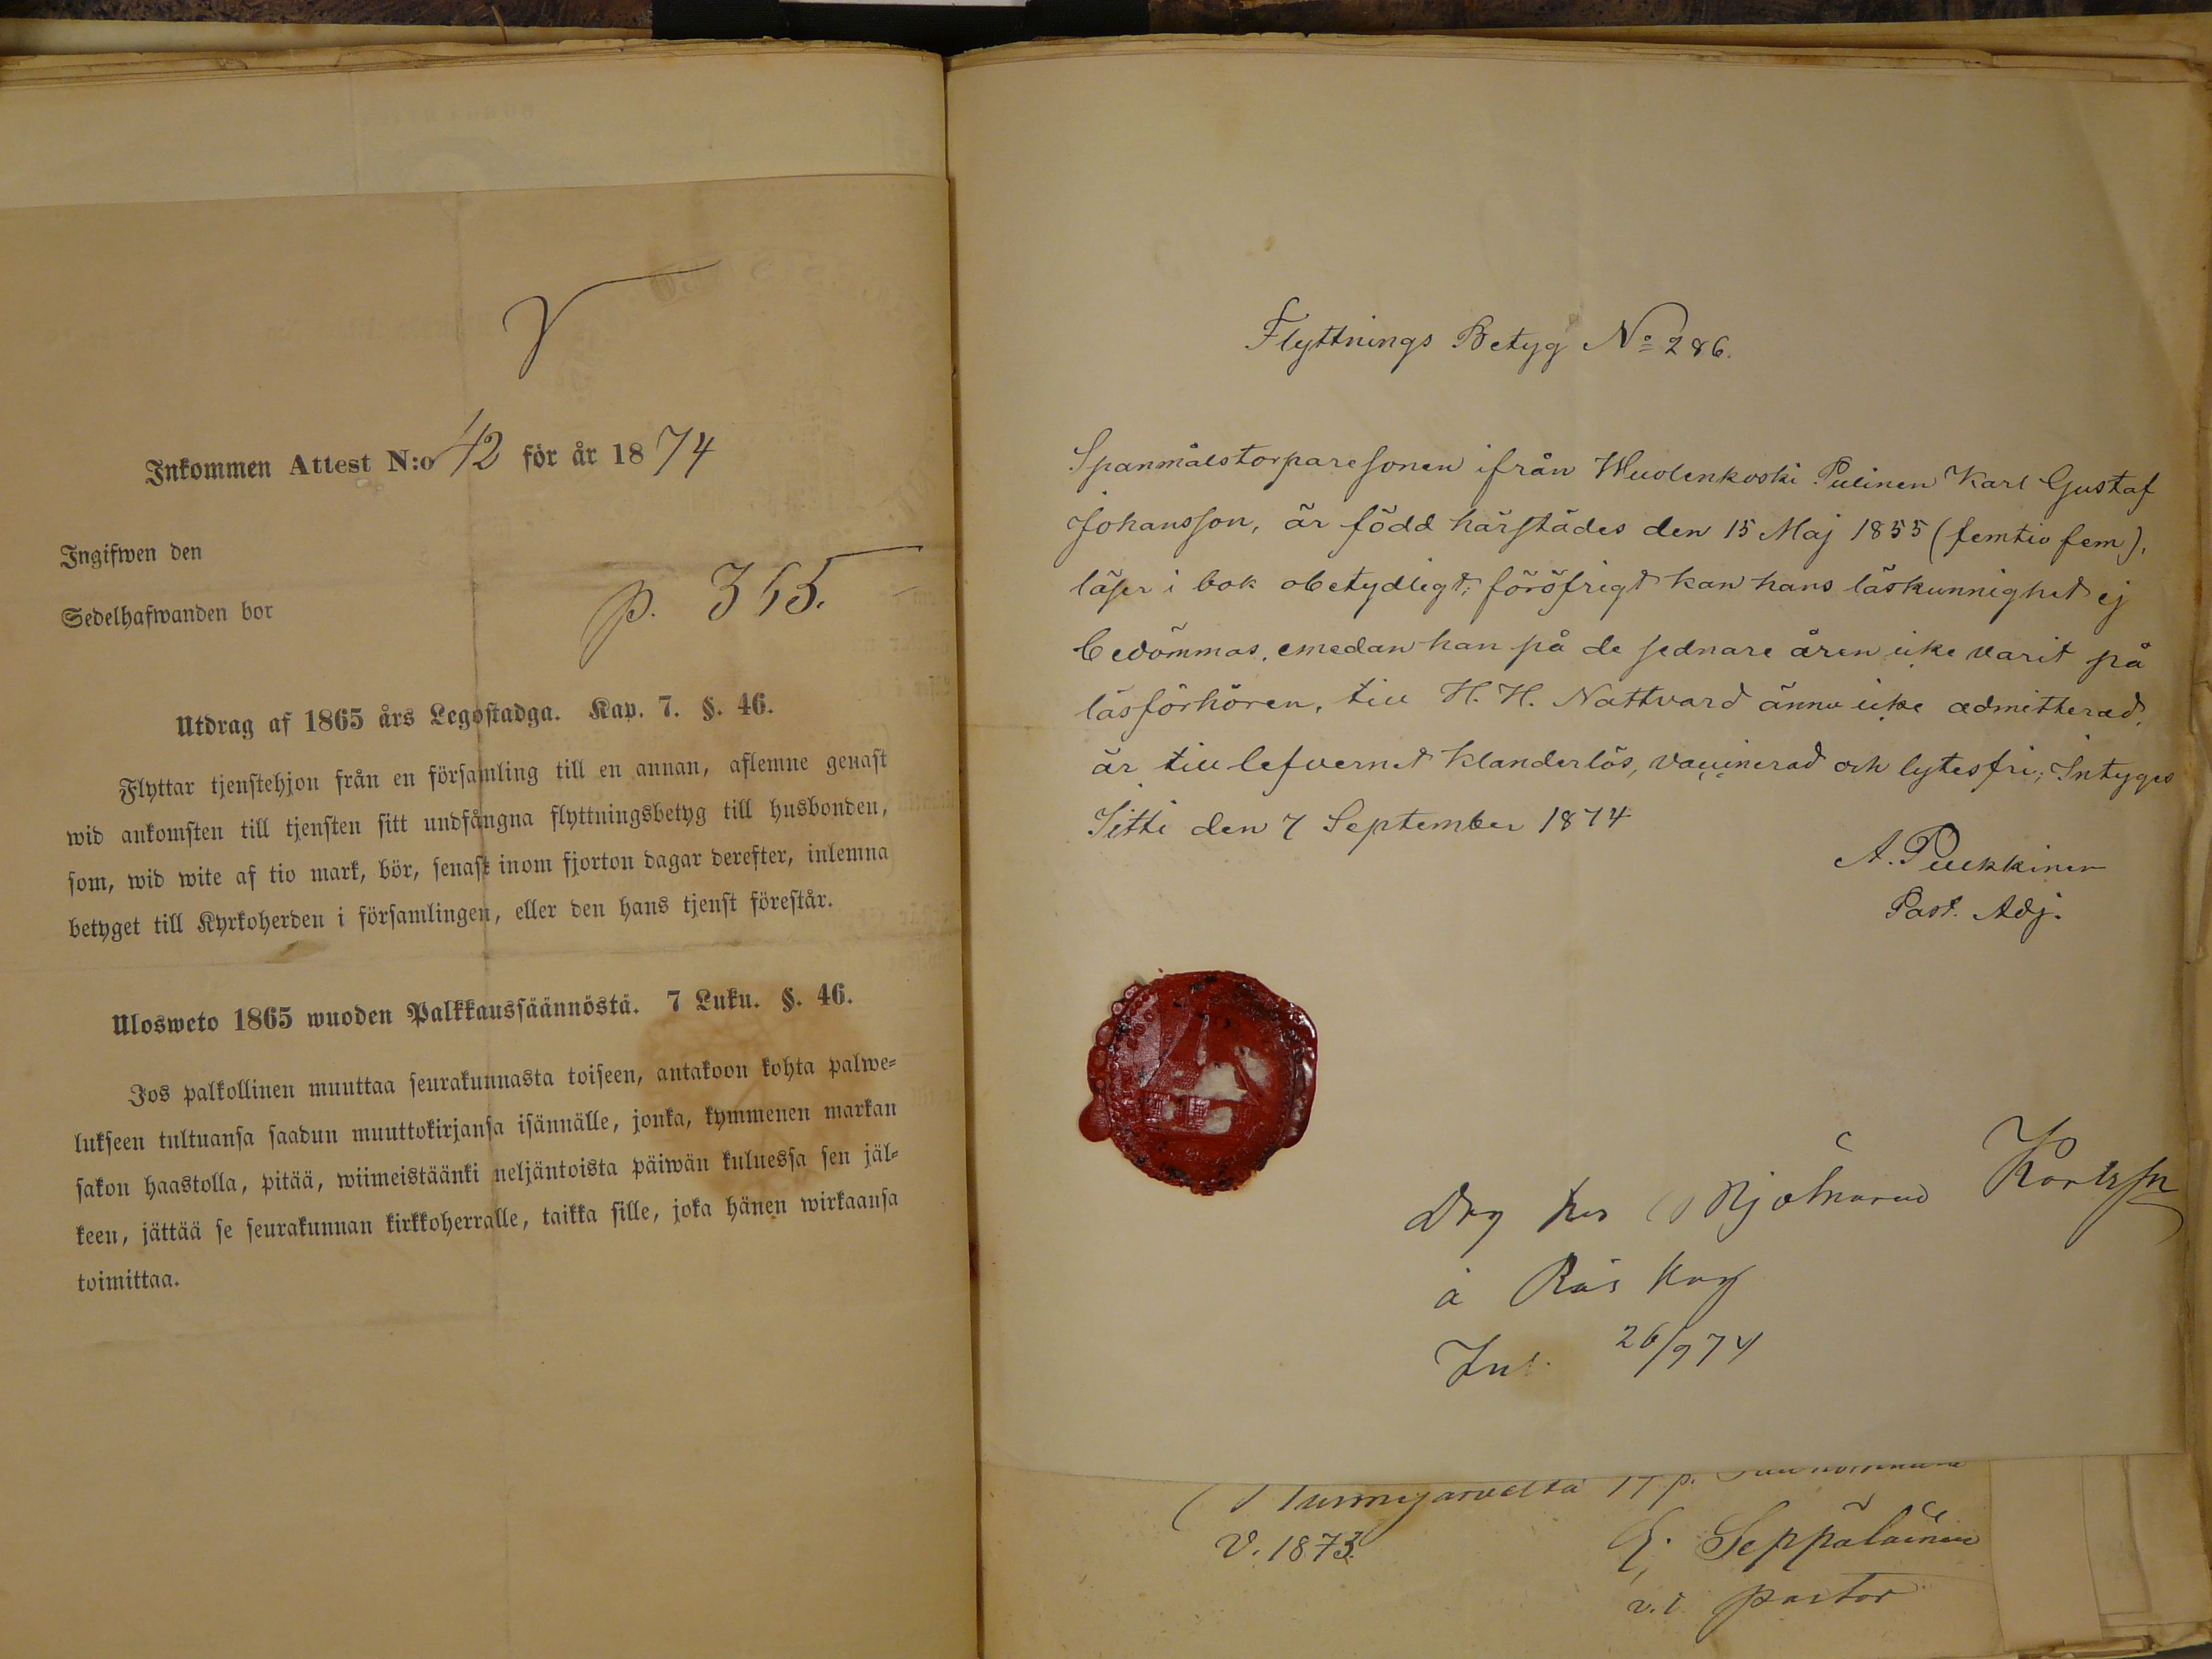 Inkommen Attest N:o 42 för år 1874
Ingifwen den
Sedelhafwanden bor
p. 365.
Utdrag af 1865 års Legostadga. Kap. 7. §. 46.
Flyttar tjenstehjon från en församling till en annan, aflemne genast
wid ankomsten till tjensten sitt undfångna flyttningsbetyg till husbonden,
som, wid wite af tio mark, bör, senast inom fjorton dagar derefter, inlemna
betyget till Kyrkoherden i församlingen, eller den hans tjenst förestår.
Ulosweto 1865 wuoden Palkkaussäännöstä. 7 Luku. §. 46.
Jos palkollinen muuttaa seurakunnasta toiseen, antakoon kohta palwe=
lukseen tultuansa saadun muuttokirjansa isännälle, jonka, kymmenen markan
sakon haastolla, pitää, wiimeistäänki neljäntoista päiwän kuluessa sen jäl=
keen, jättää se seurakunnan kirkkoherralle, taikka sille, joka hänen wirkaansa
toimittaa.
Flyttnings Betyg No 286.
Spanmålstorparesonen ifrån Wuolenkoski Pulinen Karl Gustaf
Johansson, är född härstädes den 15 Maj 1855 (femtio fem),
läser i bok obetydligt; föröfrigt kan hans läskunnighet ej
bedömmas, emedan han på de sednare åren icke varit på
läsförhören, till H. H. Nattvard ännu icke admitterad,
är till lefvernet klanderlös, vaccinerad och lytesfri; Intygas
Jitti den 7 September 1874
A. Pukkinen
Past. Adj.
Drg hos Karlssn
å Rås
26/9 74
V. 1873.
Seppäläinen
v.t. pastor